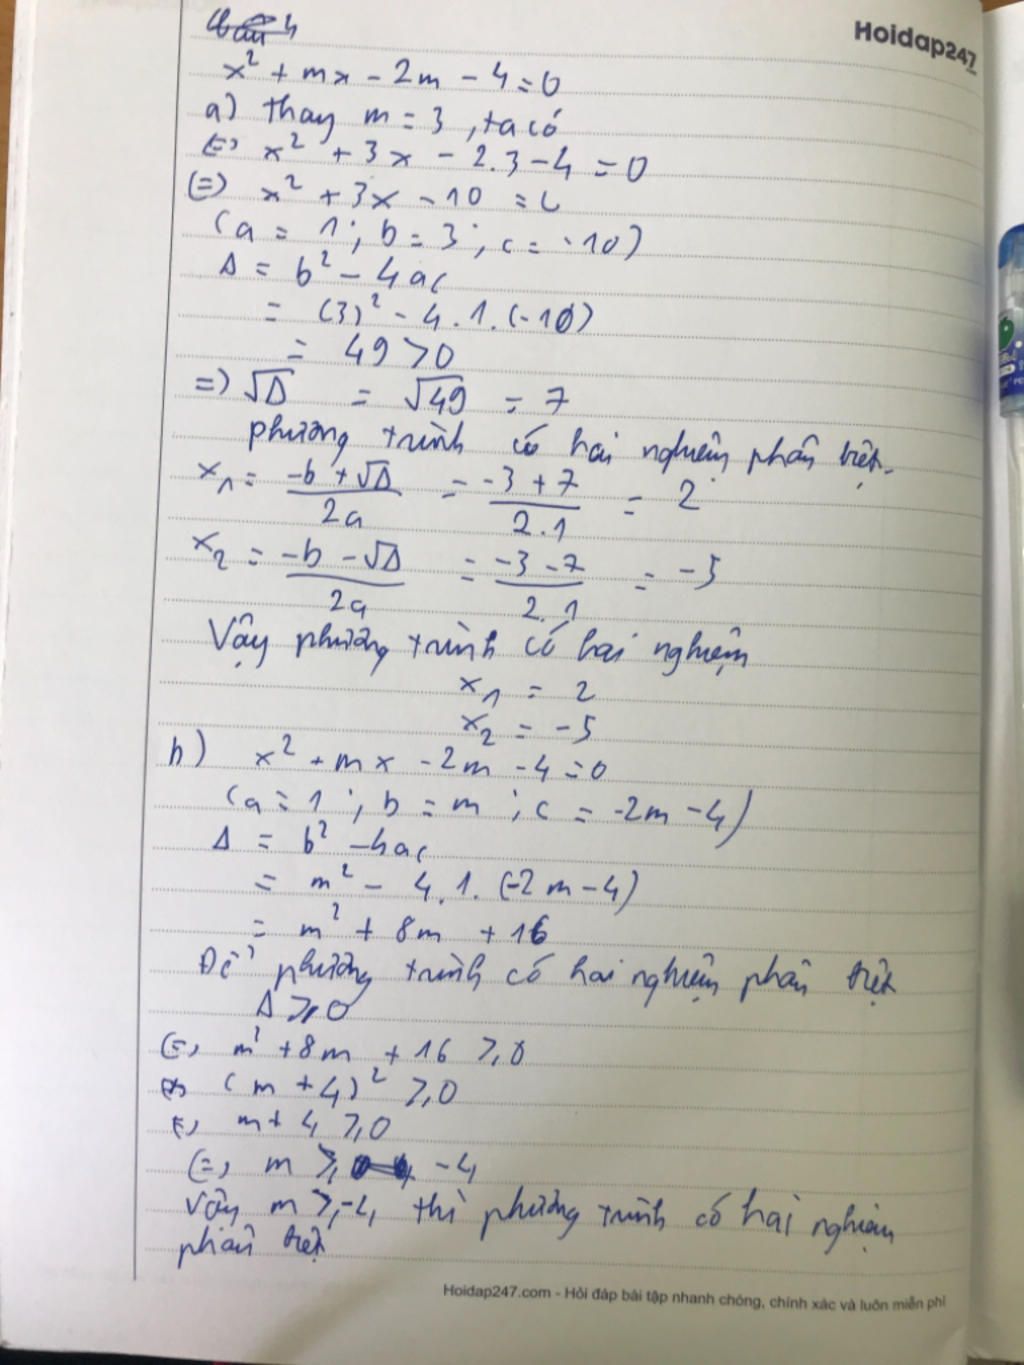 Hoidap247
Câu 4
x² + mx - 2m - 4 = 0
a) thay m = 3, ta có
(=) x² + 3x - 2.3 - 4 = 0
(=) x² + 3x - 10 = 0
(a = 1; b = 3; c = -10)
Δ = b² - 4ac
= (3)² - 4.1.(-10)
= 49 > 0
=) √Δ = √49 = 7
phương trình có hai nghiệm phân biệt.
x₁ = (-b + √Δ)/2a = (-3 + 7)/2.1 = 2
x₂ = (-b - √Δ)/2a = (-3 - 7)/2.1 = -5
Vậy phương trình có hai nghiệm
x₁ = 2
x₂ = -5
b) x² + mx - 2m - 4 = 0
(a = 1; b = m; c = -2m - 4)
Δ = b² - 4ac
= m² - 4.1.(-2m - 4)
= m² + 8m + 16
Để phương trình có hai nghiệm phân biệt
Δ ≥ 0
(=) m² + 8m + 16 ≥ 0
(=) (m + 4)² ≥ 0
(=) m + 4 ≥ 0
(=) m ≥ -4
Vậy m ≥ -4 thì phương trình có hai nghiệm
phân biệt
Hoidap247.com - Hỏi đáp bài tập nhanh chóng, chính xác và luôn miễn phí